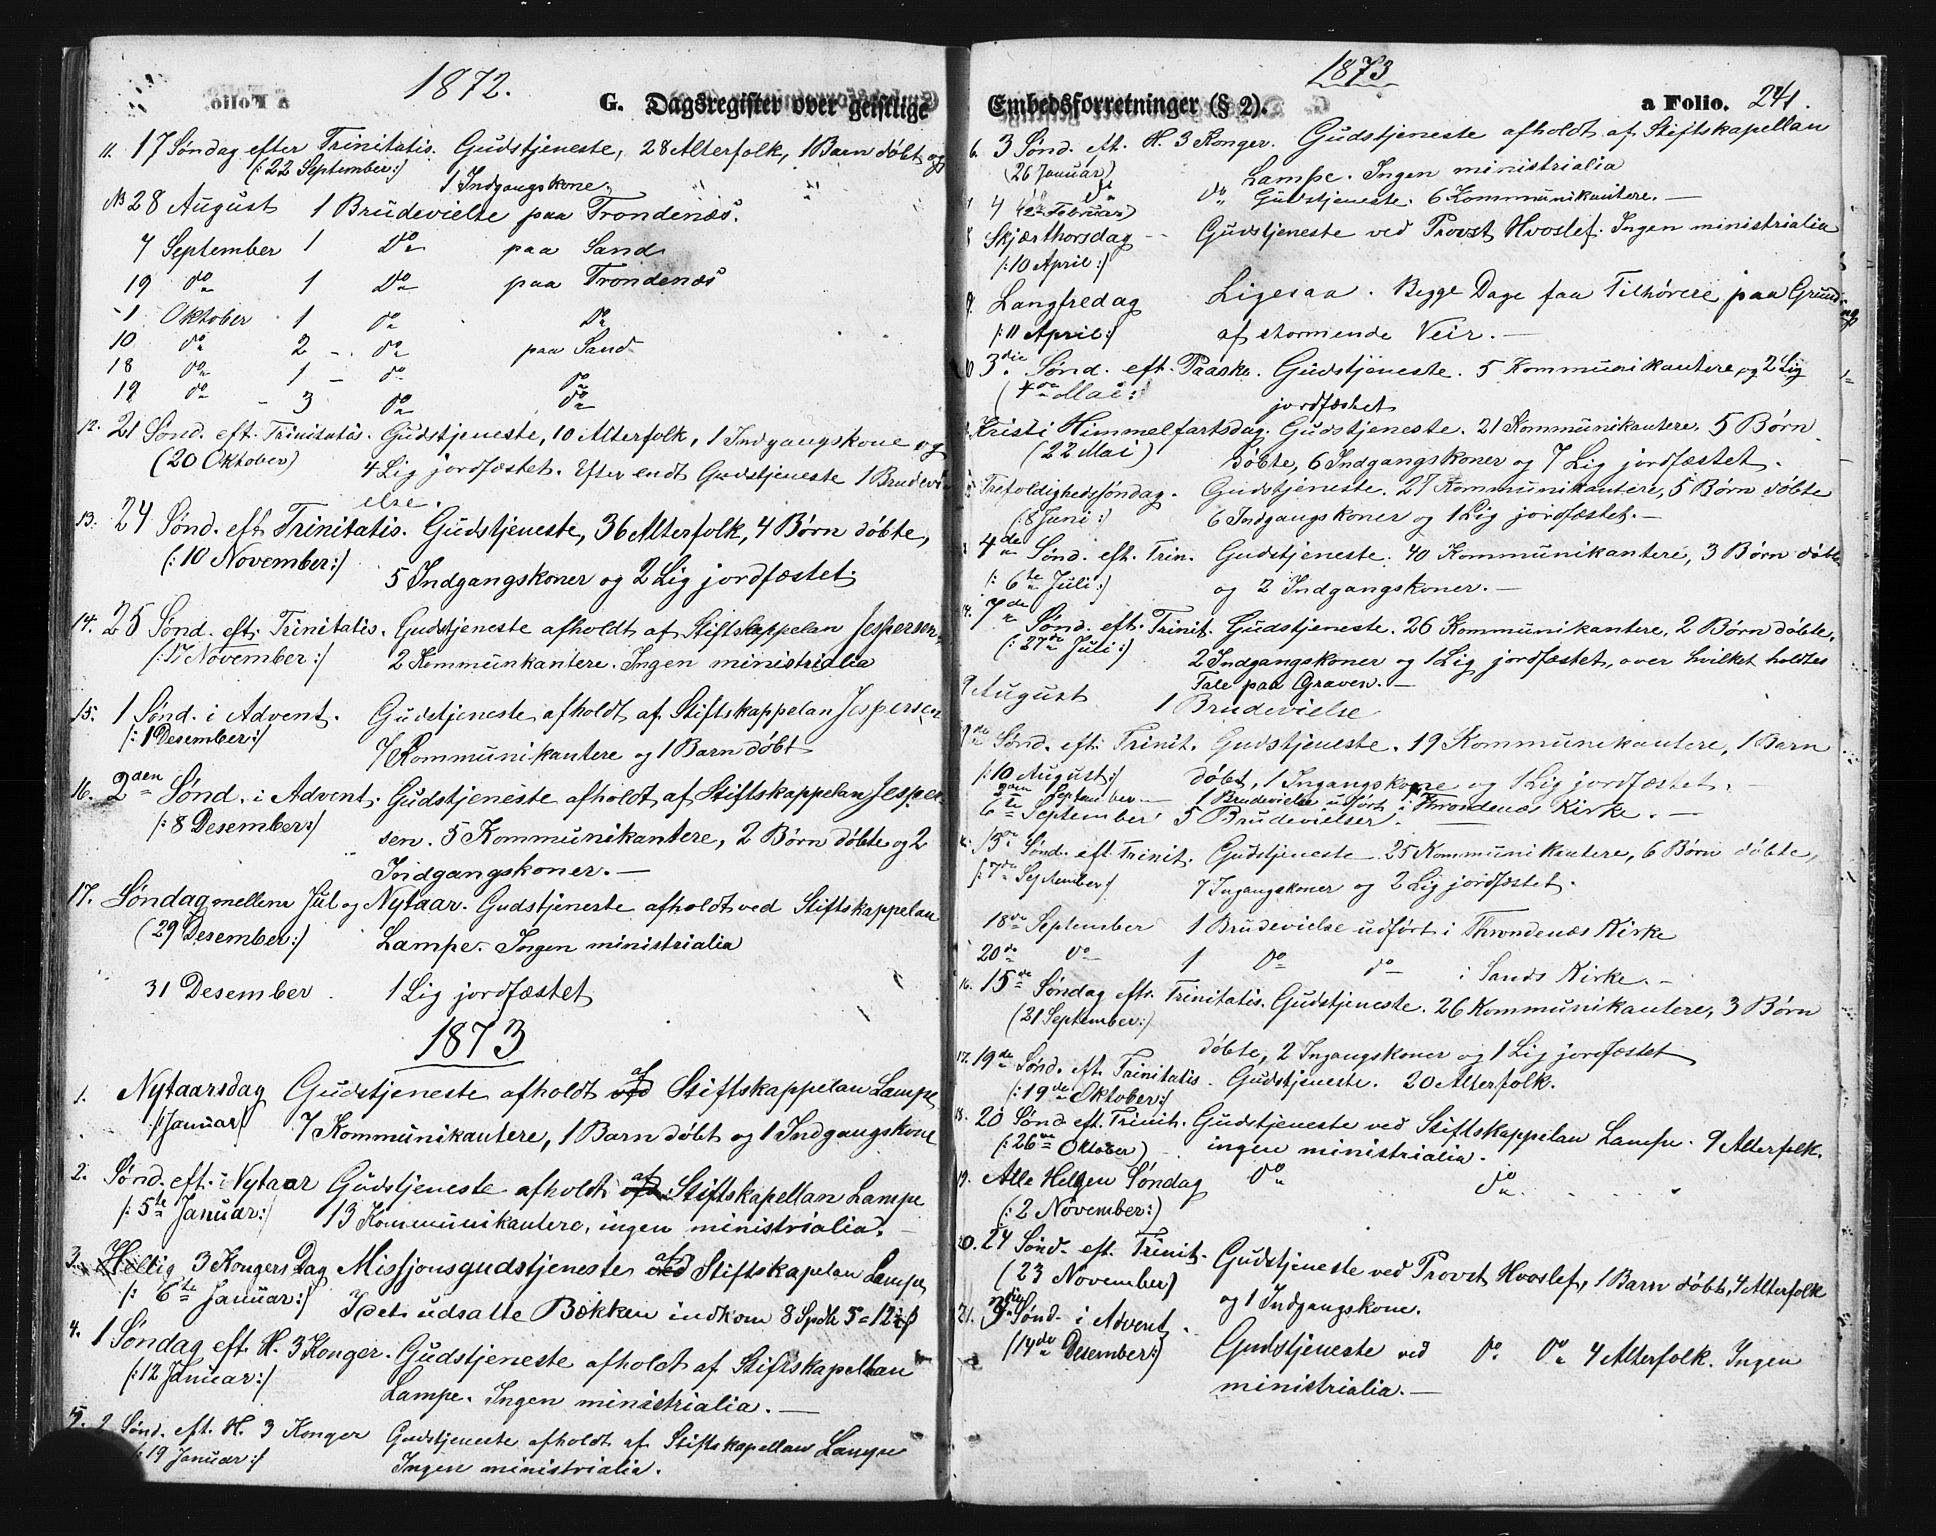 1872.
G. Dagsregister over geistlige
11. 17 Søndag efter Trinitatis. Gudstjeneste, 28 Alterfolk, 1 Barn døbt og
(: 22 September:) 1 Indgangskone.
28 August 1 Brudevielse paa Trondenæs.
7 September 1 Do paa Sand
19 do 1 Do paa Trondenæs
1 Oktober 1 do Do
10 do 2 - do paa Sand
18 do 1 - do do
19 do - 3 do do
12. 21 Sønd. eft. Trinitatis. Gudstjeneste, 10 Alterfolk, 1 Indgangskone og
(20 Oktober) 4 Lig jordfæstet. Efter endt Gudstjeneste 1 Brudevi
else.
13. 24 Sønd. eft Trinitatis. Gudstjeneste, 36 Alterfolk, 4 Børn døbte,
(: 10 November:) 5 Indgangskoner og 2 Lig jordfæstet.
14. 25 Sønd. eft. Trinitatis. Gudstjeneste afholdt af Stiftskappelan Jespersen.
(: 17 November:) 2 Kommunkantere. Ingen ministrialia
15. 1 Sønd. i Advent. Gudstjeneste afholdt af Stiftskappelan Jespersen
(: 1 Desember:) 7 Kommunikantere og 1 Barn døbt
16. 2den Sønd. i Advent. Gudstjeneste afholdt af Stiftskappelan Jesper-
(: 8 Desember:) sen. 5 Kommunikantere, 2 Børn døbte og 2
Indgangskoner. —
17. Søndag mellem Jul og Nytaar. Gudstjeneste afholdt ved Stiftskappelan
(29 Desember:) Lampe. Ingen ministrialia
31 Desember. 1 Lig jordfæstet
1873
1. Nytaarsdag Gudstjeneste afholdt af Stiftskappelan Lampe
(Januar) 7 Kommunikantere, 1 Barn døbt og 1 Indgangskone
2. Sønd. eft. Nytaar Gudstjeneste afholdt af Stiftskapellan Lampe
(: 5te Januar:) 13 Kommunikantere, ingen ministrialia. —
3. Hellig 3 Kongers Dag Missjonsgudstjeneste af Stiftskapelan Lampe
(: 6te Januar:) I det udsatte Bækken indkom 8 Spdlr 5 = 12 ß
4. 1 Søndag eft. H. 3 Konger. Gudstjeneste afholdt af Stiftskapellan
(: 12 Januar:) Lampe. Ingen ministrialia. —
5. 2 Sønd. eft. H. 3 Konger Gudstjeneste afholdt af Stiftskapellan Lampe
(: 19 Januar:) Ingen ministrialia.
1873
Embedsforretninger (§ 2). a Folio. 241.
6. 3 Sønd. eft. H. 3 Konger. Gudstjeneste afholdt af Stiftskapellan
(26 Januar) Lampe. Ingen ministrialia
4 do do do Gudstjeneste. 6 Kommunikantere. —
(2 Februar)
8 Skjærthorsdag -- Gudstjeneste ved Provst Hvoslef. Ingen ministrialia
(: 10 April:)
9. Langfredag Ligesaa. Begge Dage faa Tilhørere paa Grund
(: 11 April:) af stormende Veir. —
10 3die Sønd. eft. Paaske. Gudstjeneste. 5 Kommunikantere, og 2 Lig
(4de Mai: jordfæstet
Kristi Himmelfartsdag. Gudstjeneste. 21 Kommunikantere, 5 Børn
(22 Mai) døbte, 6 Indgangskoner og 7 Lig jordfæstet.
Trefoldighedssøndag. Gudstjeneste. 27 Kommunikantere, 5 Børn døbte
(: 8 Juni:) 6 Indgangskoner og 1 Lig jordfæstet. —
4de Sønd. eft. Trin. Gudstjeneste. 40 Kommunikantere, 3 Børn døbte
(: 6te Juli:) og 2 Indgangskoner. —
14. 7de Sønd. eft. Trinit. Gudstjeneste. 26 Kommunikantere, 2 Børn døbte,
(: 27de Juli:) 2 Indgangskoner og 1 Lig jordfæstet, over hvilket holdtes
Tale paa Graven. —
9 August 1 Brudevielse
9de Sønd. eft. Trinit. Gudstjeneste. 19 Kommunikantere, 1 Barn
(: 10 August:) døbt, 1 Ingangskone og 1 Lig jordfæstet.
September — 1 Brudevielse udført i
6te September 5 Brudevielser. Throndenæs Kirke. —
13de Sønd. eft. Trinit. Gudstjeneste — 25 Kommunikantere, 6 Børn døbte,
(: 7de September) 7 Ingangskoner og 2 Lig jordfæstet.
18de September 1 Brudevielse udført i Throndenæs Kirke
20de do 1 Do do i Sands Kirke. —
16. 15de Søndag eftr. Trinitatis. Gudstjeneste. 26 Kommunikantere, 3 Børn
(21 September:) døbte, 2 Ingangskoner og 1 Lig jordfæstet
17. 19de Sønd. eft. Trinitatis. Gudstjeneste. 20 Alterfolk.
(: 19de Oktober:)
18. 20 Sønd. eft. Trinit. Gudstjeneste ved Stiftskappelan Lampe. 9 Alterfolk.
(: 26de Oktober) ingen ministrialia.
19. Alle Helgen Søndag Do do
(: 2 November:)
20. 24 Sønd. eft. Trinit. Gudstjeneste ved Provst Hvoslef, 1 Barn døbt, 4 Alterfolk
(23 November) og 1 Indgangskone.
21. 3die Sønd. i Advent. Gudstjeneste ved Do Do 4 Alterfolk. Ingen
(14de Desember:) ministrialia. —